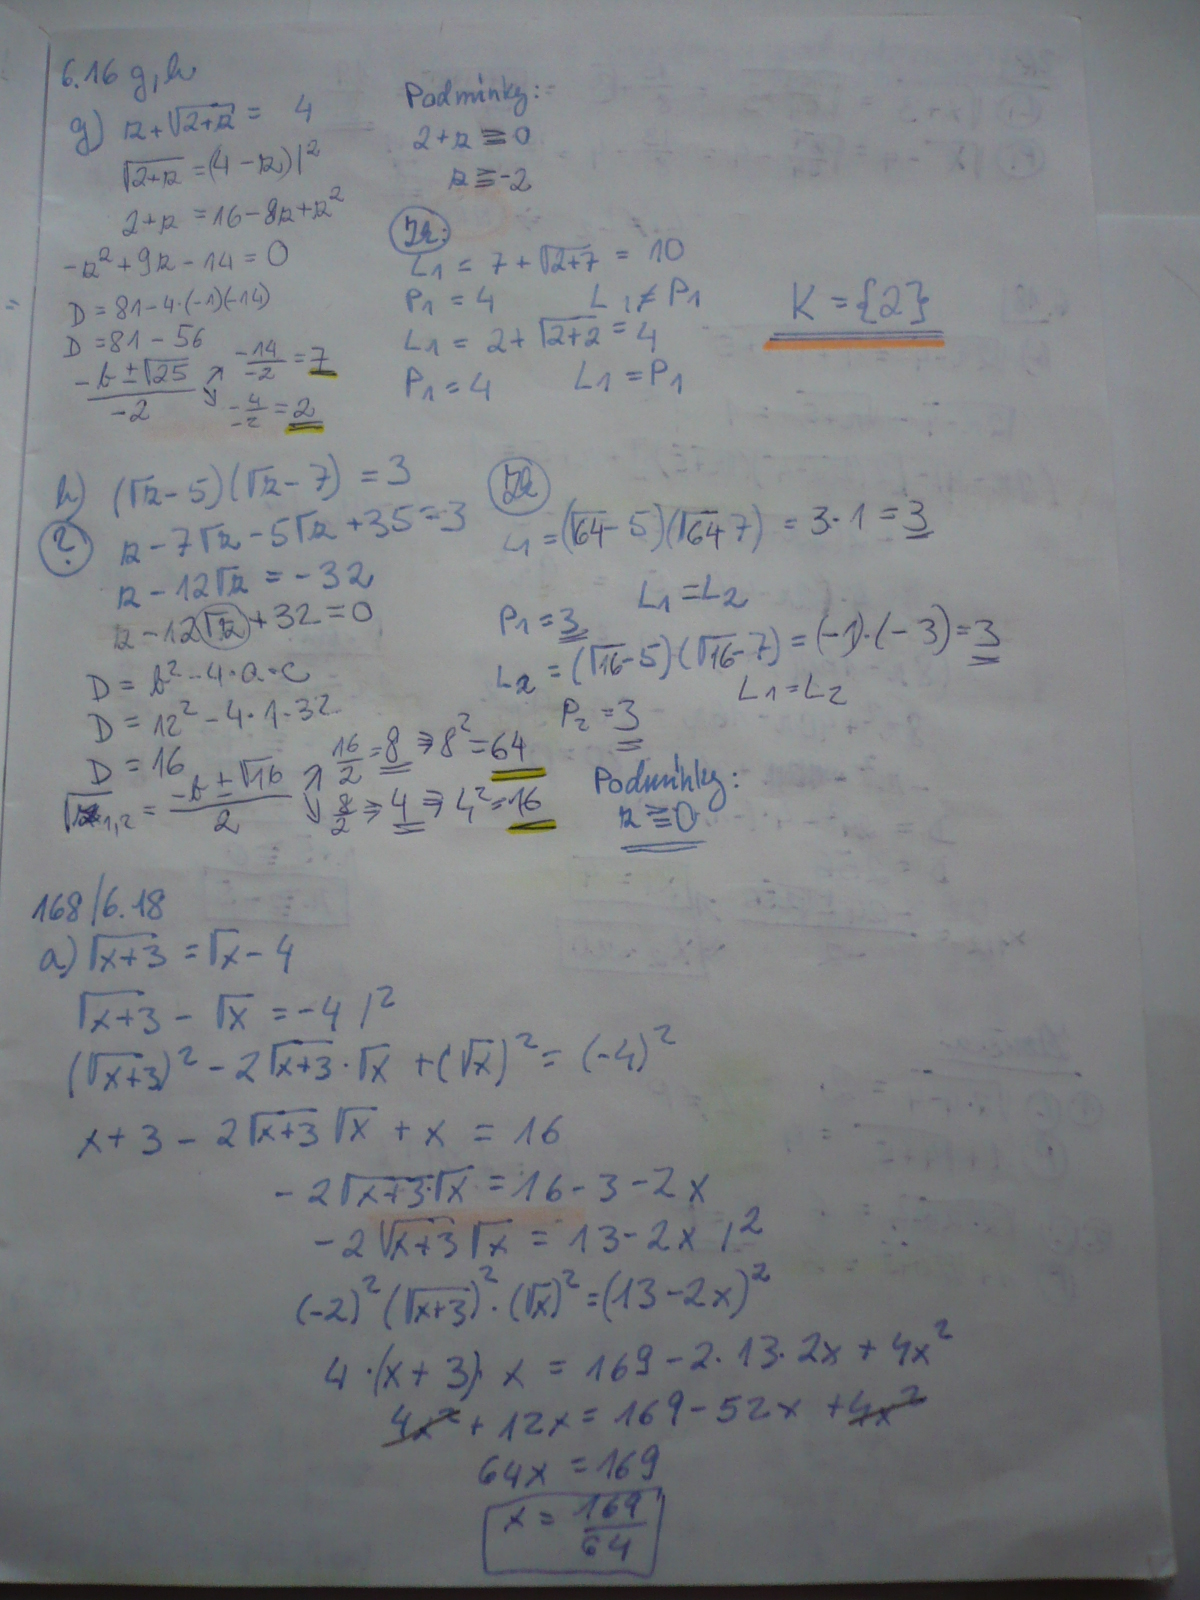 6.16 g, h
g) r + √(2+r) = 4
√(2+r) = (4 - r) |²
2 + r = 16 - 8r + r²
-r² + 9r - 14 = 0
D = 81 - 4·(-1)(-14)
D = 81 - 56
(-b ± √25)/(-2) ↗ (-14)/(-2) = 7
↘ (-4)/(-2) = 2
Podmínky:
2 + r ≥ 0
r ≥ -2
Zk:
L1 = 7 + √(2+7) = 10
P1 = 4 L1 ≠ P1
L1 = 2 + √(2+2) = 4
P1 = 4 L1 = P1
K = {2}
h) (√r - 5)(√r - 7) = 3
?
r - 7√r - 5√r + 35 = 3
r - 12√r = -32
r - 12√r + 32 = 0
D = b² - 4·a·c
D = 12² - 4·1·32
D = 16
1,2 = (-b ± √16)/2 ↗ 16/2 = 8 ⇒ 8² = 64
↘ 8/2 ⇒ 4 ⇒ 4² = 16
Zk
L1 = (√64 - 5)(√64 7) = 3·1 = 3
L1 = L2
P1 = 3
L2 = (√16 - 5)·(√16 - 7) = (-1)·(-3) = 3
L1 = L2
P2 = 3
Podmínky:
r ≥ 0
168/6.18
a) √(x+3) = √x - 4
√(x+3) - √x = -4 |²
(√(x+3))² - 2√(x+3)·√x + (√x)² = (-4)²
x + 3 - 2√(x+3) √x + x = 16
-2√(x+3)·√x = 16 - 3 - 2x
-2√(x+3) √x = 13 - 2x |²
(-2)² (√(x+3))² · (√x)² = (13 - 2x)²
4·(x + 3)·x = 169 - 2·13·2x + 4x²
4x² + 12x = 169 - 52x + 4x²
64x = 169
x = 169/64